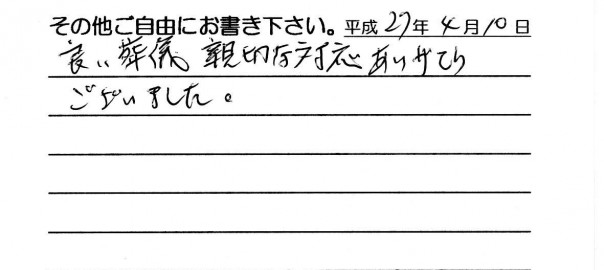 その他ご自由にお書き下さい。平成27年4月10日
良い葬儀 親切な対応ありがとう
ございました。